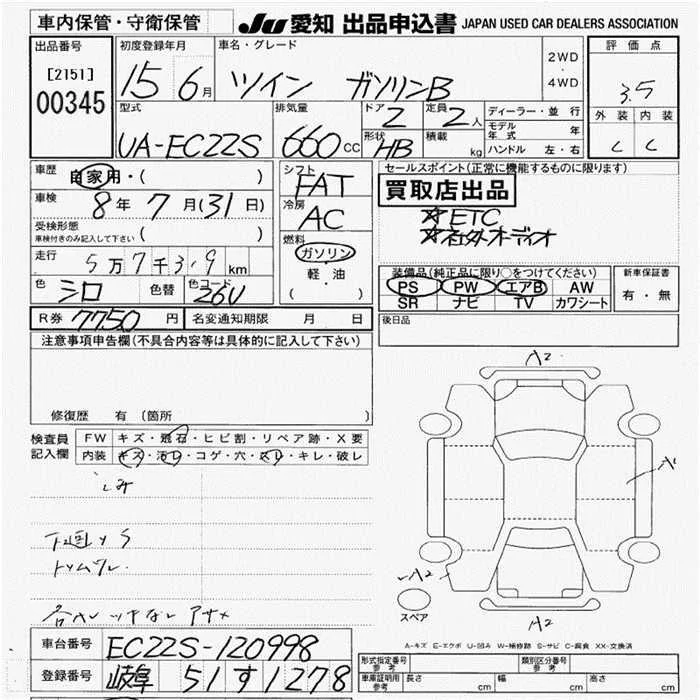 車内保管・守衛保管
JU 愛知 出品申込書 JAPAN USED CAR DEALERS ASSOCIATION
出品番号
[2151]
00345
初度登録年月
15 6月
車名・グレード
ツイン ガソリンB
2WD
・
4WD
評価点
3.5
外装 内装
C C
型式
UA-EC22S
排気量
660cc
ドア
2
定員
2人
形状
HB
積載
kg
ディーラー・並行
モデル年式 年
ハンドル 左・右
車歴
自家用・( )
車検
8年 7月(31日)
受検形態
車検付きのみ記入して下さい ( )
走行
5万7千3,9 km
色
シロ
色替
色コード
26U
シフト
FAT
冷房
AC
燃料
ガソリン
・
軽・油
( )
セールスポイント(正常に機能するものに限ります)
買取店出品
☆ETC
☆社外オーディオ
装備品(純正品に限り○をつけてください)
PS PW エアB AW
SR ナビ TV カワシート
新車保証書
有・無
R券 7750円
名変通知期限 月 日
後日品
注意事項申告欄(不具合内容等は具体的に記入して下さい)
修復歴 有(箇所
検査員
記入欄
FW キズ・飛石・ヒビ割・リペア跡・X要
内装 キズ・汚レ・コゲ・穴・スレ・キレ・破レ
シミ
下廻りS
A2
A1
A2
A2
スペア
A-キズ E-エクボ U-凹み W-補修跡 S-サビ C-腐食 XX-交換済
車台番号
EC22S-120998
登録番号
岐阜 51 す 1278
形式指定番号
参考
類別区分番号
参考
車庫証明
参考
長さ cm 幅 cm 高さ cm